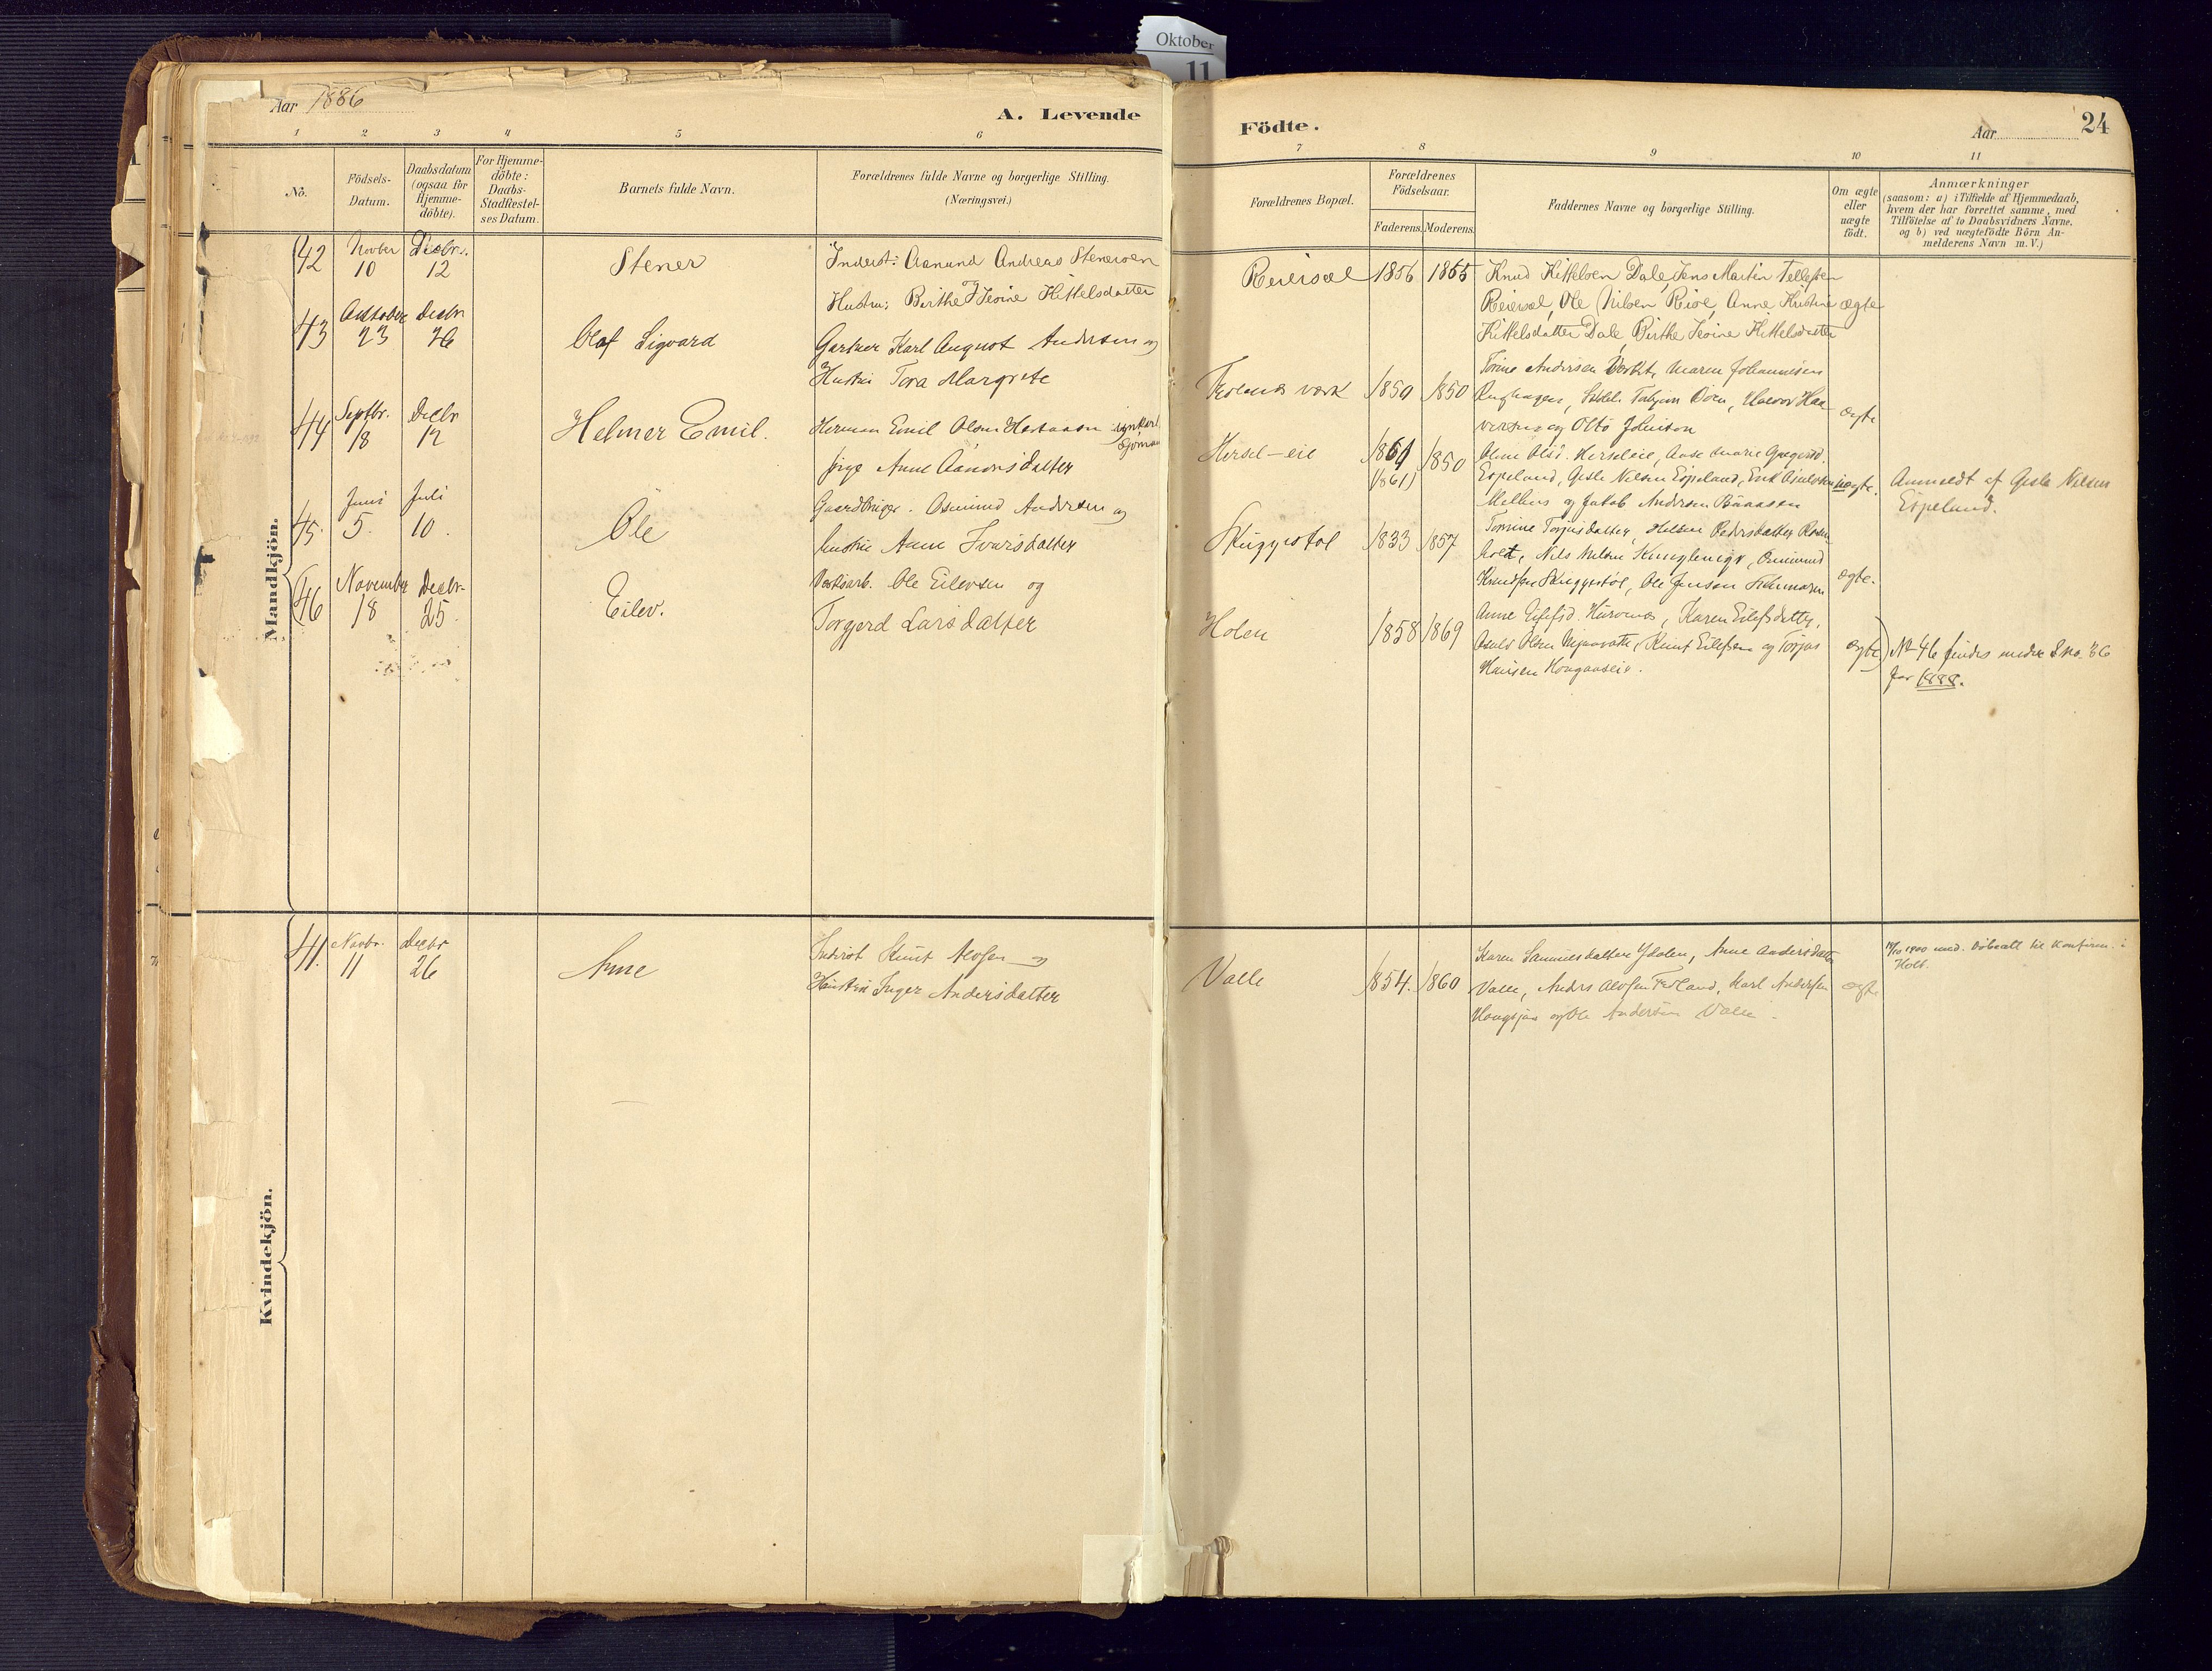 Oktober
11
Aar 1886
A. Levende
Födte.
Aar
24
1 2 3 4 5 6 7 8 9 10 11
No.
Födsels-
Datum.
Daabsdatum
(ogsaa for
Hjemme-
döbte).
For Hjemme-
döbte:
Daabs-
Stadfestel-
ses Datum.
Barnets fulde Navn.
Forældrenes fulde Navne og borgerlige Stilling.
(Næringsvei.)
Forældrenes Bopæl.
Forældrenes
Födselsaar.
Faderens. Moderens.
Faddernes Navne og borgerlige Stilling.
Om ægte
eller
uægte
födt.
Anmærkninger
(saasom: a) i Tilfælde af Hjemmedaab,
hvem der har forrettet samme, med
Tilföielse af to Daabsvidners Navne.
og b) ved uægtefödte Börn An-
melderens Navn m. V.)
Mandkjön.
42
Novber
10
Decbr.
12
Stener
Inderst: Aanund Andreas Stenersen
og
Hustru: Berthe Serine Kittelsdatter
Reiersøl
1856 1865
Knud Kittelsen Dale, Jens Martin Tellefsen
Reiersøl, Ole Nilsen Reise, Anne Kristine
Kittelsdatter Dale, Birthe Serine Kittelsdatter
ægte
43
October
23
Decbr
26
Olaf Sigvard
Gartner Karl August Andersen og
Hustru Tora Margrete
værk
1850 1850
Torine Andersen Maren Johannesen
Haa-
og Otto Johnson
ægte
44
Septbr.
18
Decbr
12
Helmer Emil.
Herman Emil Olsen ugift
Sömand
Anne Aanonsdatter
Hersel-eie
1861
(1861)
1850
Olsd. Herseleie, Aase Marie
Espeland, Gisle Nilsen Espeland,
og Jakob Andersen
uægte.
Anmeldt af Gisle Nilsen
Espeland.
45.
Juni
5.
Juli
10.
Ole
Gaardbruger. Osmund Andersen og
hustru Anne Ivarsdatter
Skuggestøl
1833 1857
Tomine Torjusdatter, Helene Pedersdatter Rosen-
holt, Nils Nilsen Osmund
Knudsen Skuggestøl, Ole Jensen
ægte.
(46
November
18
Decbr.
25.
Eilev.
Verksarb. Ole Eilevsen og
Torgjerd Larsdatter
Holen
1858 1869
Anne Karen Eilefsdatter,
Osuld Olsen Knut Eilefsen og Torjus
Hansen Hougaaseie.
ægte)
No 46 findes under S no. 36
for 1888.
Kvindekjön.
41.
Novbr.
11
Decbr
26
Anne
Inderst Knut Alofsen og
Hustru Inger Andersdatter
Valle
1854. 1860
Karen Samuelsdatter Ydalen, Anne Andersdatter
Valle, Anders Alofsen Fedland, Karl Andersen
og Ole Andersen Valle.
ægte
1900 med. Döbeatt til Konfirm. i
Holt.